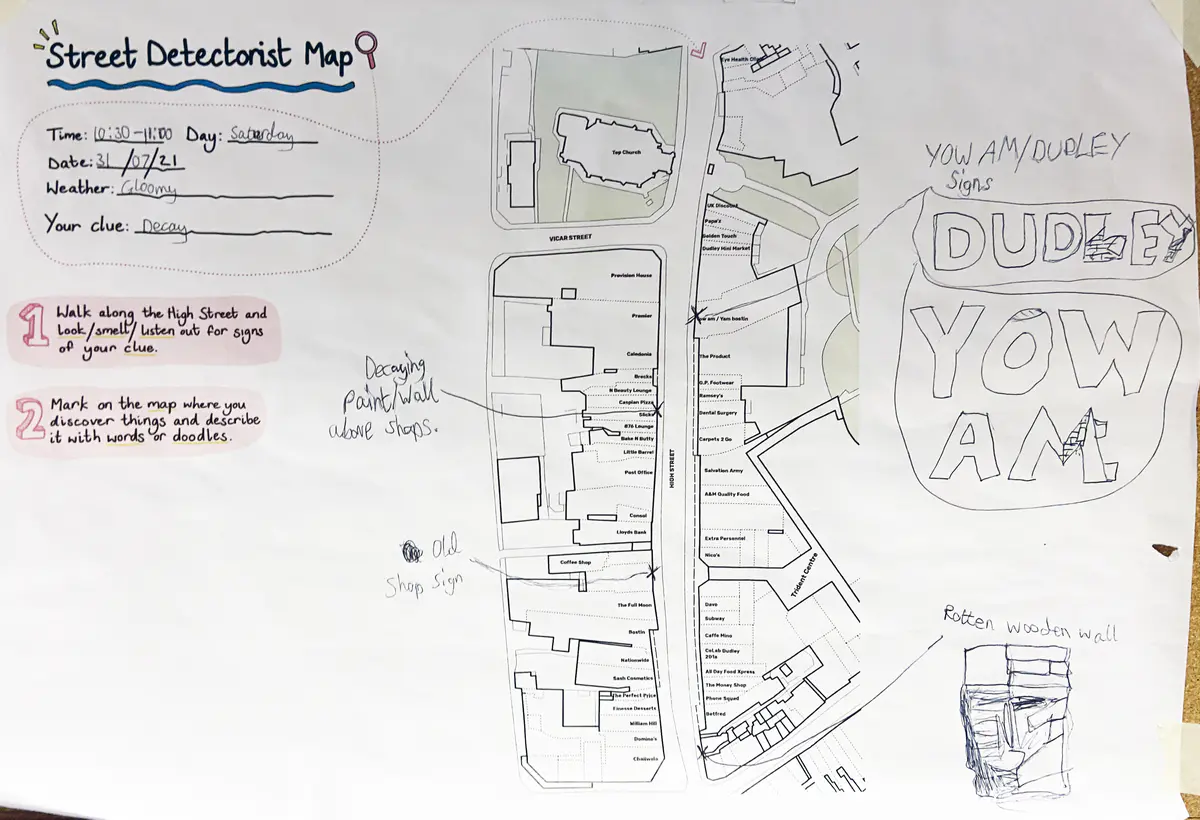 Street Detectorist Map
Time: 10:30-11:00 Day: Saturday
Date: 31/07/21
Weather: Gloomy
Your clue: Decay
1 Walk along the High Street and
look/smell/listen out for signs
of your clue.
2 Mark on the map where you
discover things and describe
it with words or doodles.
Decaying
Paint/Wall
above shops.
Old
Shop Sign
Top Church
VICAR STREET
Provision House
Premier
Caledonia
Brecks
N Beauty Lounge
Caspian Pizza
Slicks
876 Lounge
Bake N Butty
Little Barrel
Post Office
Consol
Lloyds Bank
Coffee Shop
The Full Moon
Bostin
Nationwide
Sash Cosmetics
The Perfect Price
Finesse Desserts
William Hill
Domino's
Chaiwala
HIGH STREET
Eye Health Clinic
UK Discount
Papa's
Golden Touch
Dudley Mini Market
am / Yam bostin
The Product
G.P. Footwear
Ramsey's
Dental Surgery
Carpets 2 Go
Salvation Army
A&M Quality Food
Extra Personnel
Nico's
Trident Centre
Dave
Subway
Caffe Mino
CoLab Dudley
201a
All Day Food Xpress
The Money Shop
Phone Squad
Betfred
YOW AM/DUDLEY
Signs
DUDLEY
YOW
AM
Rotten wooden wall